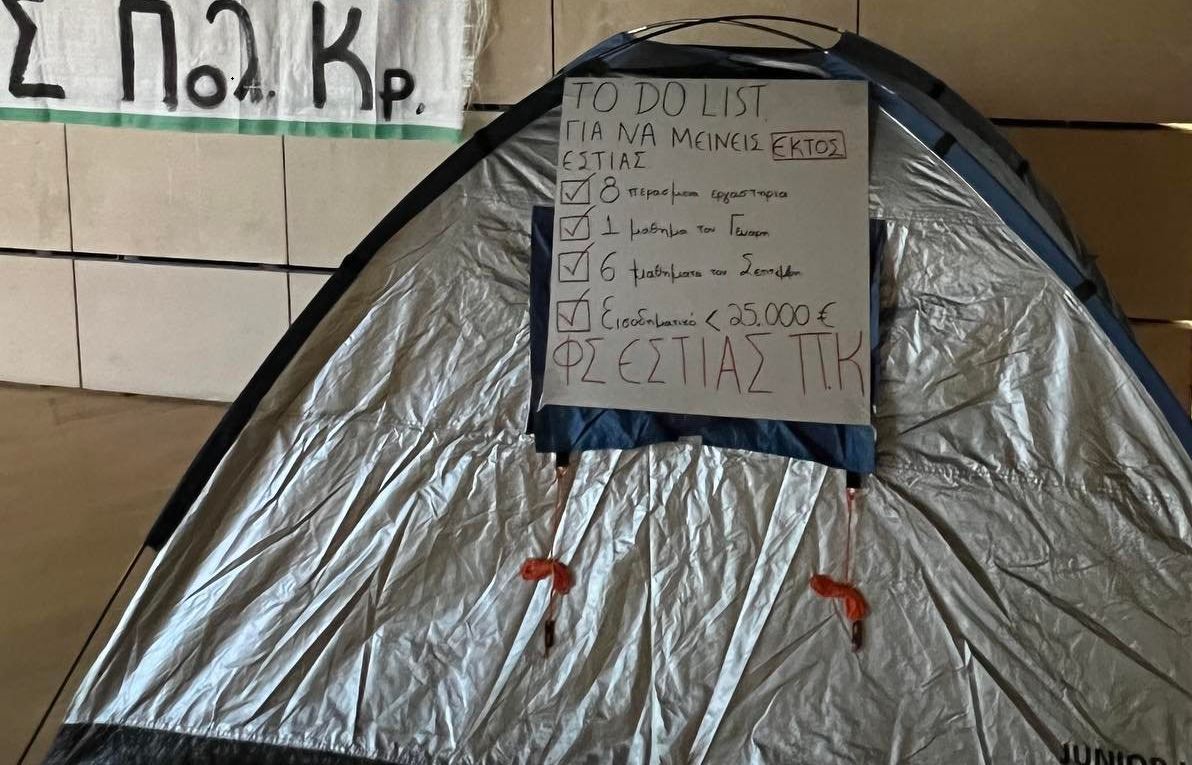 Σ Πολ. Κρ.
TO DO LIST
ΓΙΑ ΝΑ ΜΕΙΝΕΙΣ ΕΚΤΟΣ
ΕΣΤΙΑΣ
8 περασμενα εργαστηρια
1 μαθημα τον Γεναρη
6 μαθηματα τον Σεπτεμβρη
Εισοδηματικό < 25.000 €
ΦΣ ΕΣΤΙΑΣ Π.Κ
JUNIOR